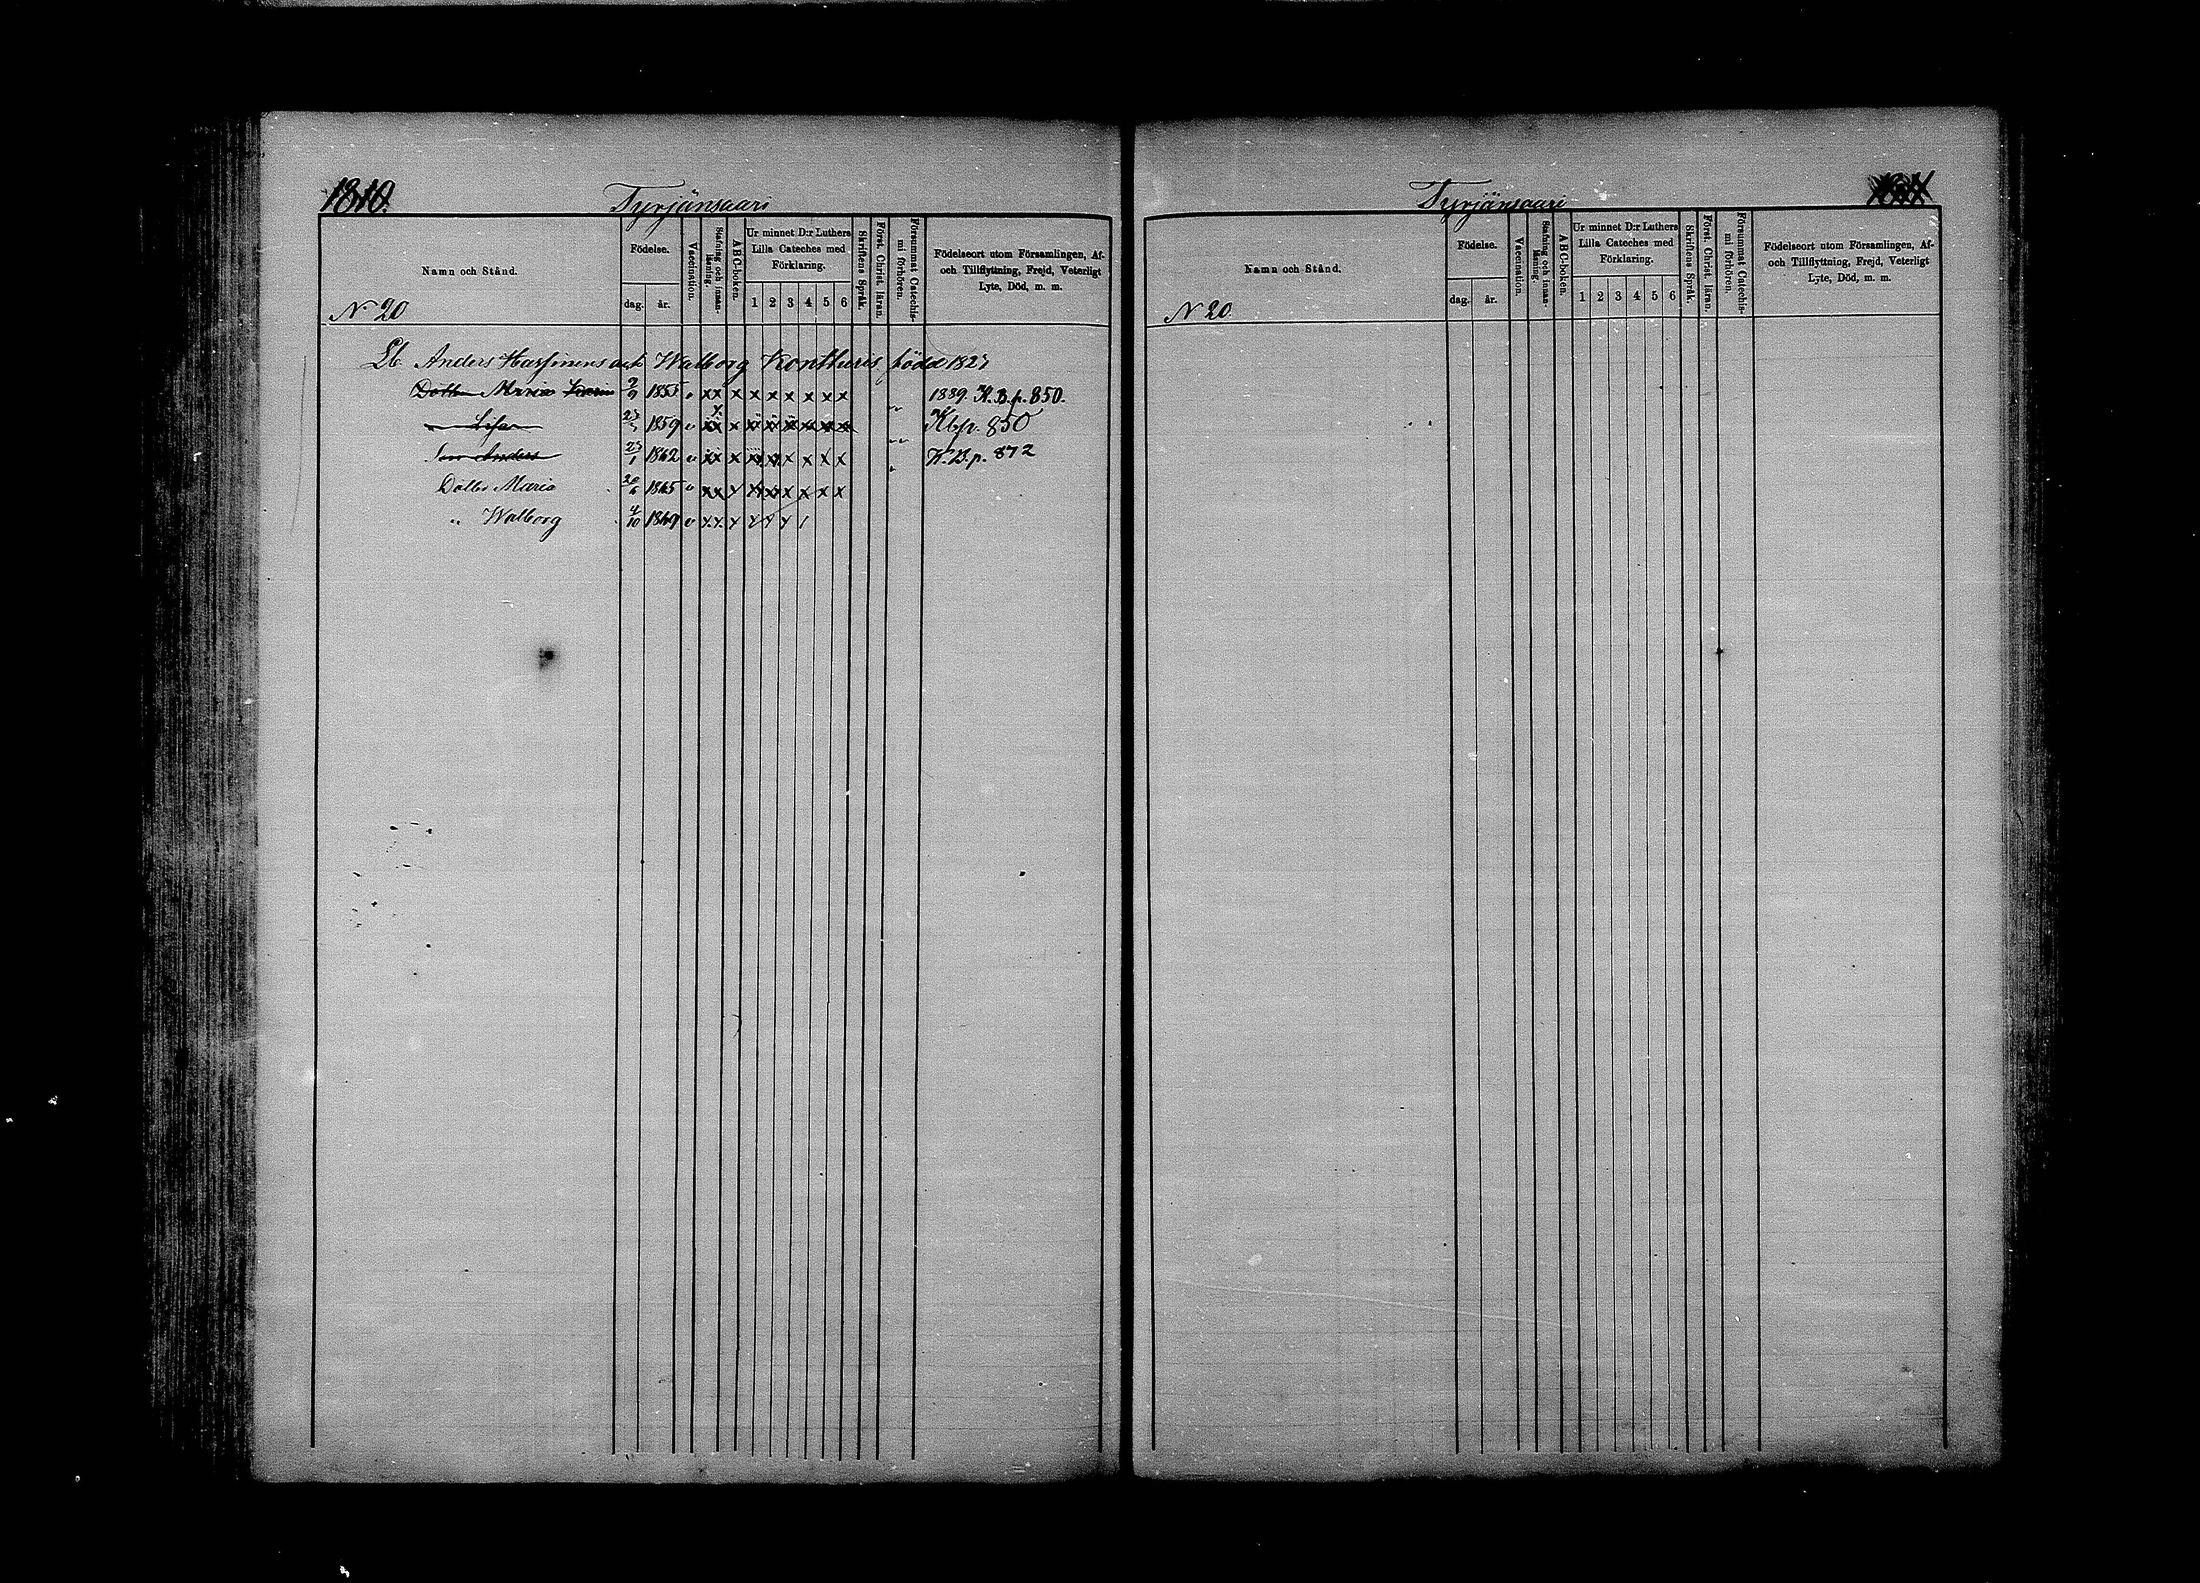 1810. Tyrjänsaari
Namn och Stånd.
N 20
Födelse.
dag. år.
Vaccination.
Stafning och innan-läsning.
ABC-boken.
Ur minnet D:r Luthers
Lilla Cateches med
Förklaring.
1 2 3 4 5 6
Skriftens Språk.
Först. Christ. läran.
Försummat Catechis-mi förhören.
Födelseort utom Församlingen, Af-
och Tillflyttning, Frejd, Veterligt
Lyte, Död, m. m.
Lb. Anders och Walborg född 1827
Dotter Maria Karin 1855 v xx x x x x x x x 1889 K.B.p. 850.
" Lisa 1859 v xx x x x x x x x Kb.p. 850
Son Anders 23/1 1862 v xx x x x x x x x K.B.p. 872
Dotter Maria 20/6 1865 v xx x x x x x x x
" Walborg 4/10 1869 v xx x x x x
Tyrjänsaari
Namn och Stånd.
N 20
Födelse.
dag. år.
Vaccination.
Stafning och innan-läsning.
ABC-boken.
Ur minnet D:r Luthers
Lilla Cateches med
Förklaring.
1 2 3 4 5 6
Skriftens Språk.
Först. Christ. läran.
Försummat Catechis-mi förhören.
Födelseort utom Församlingen, Af-
och Tillflyttning, Frejd, Veterligt
Lyte, Död, m. m.